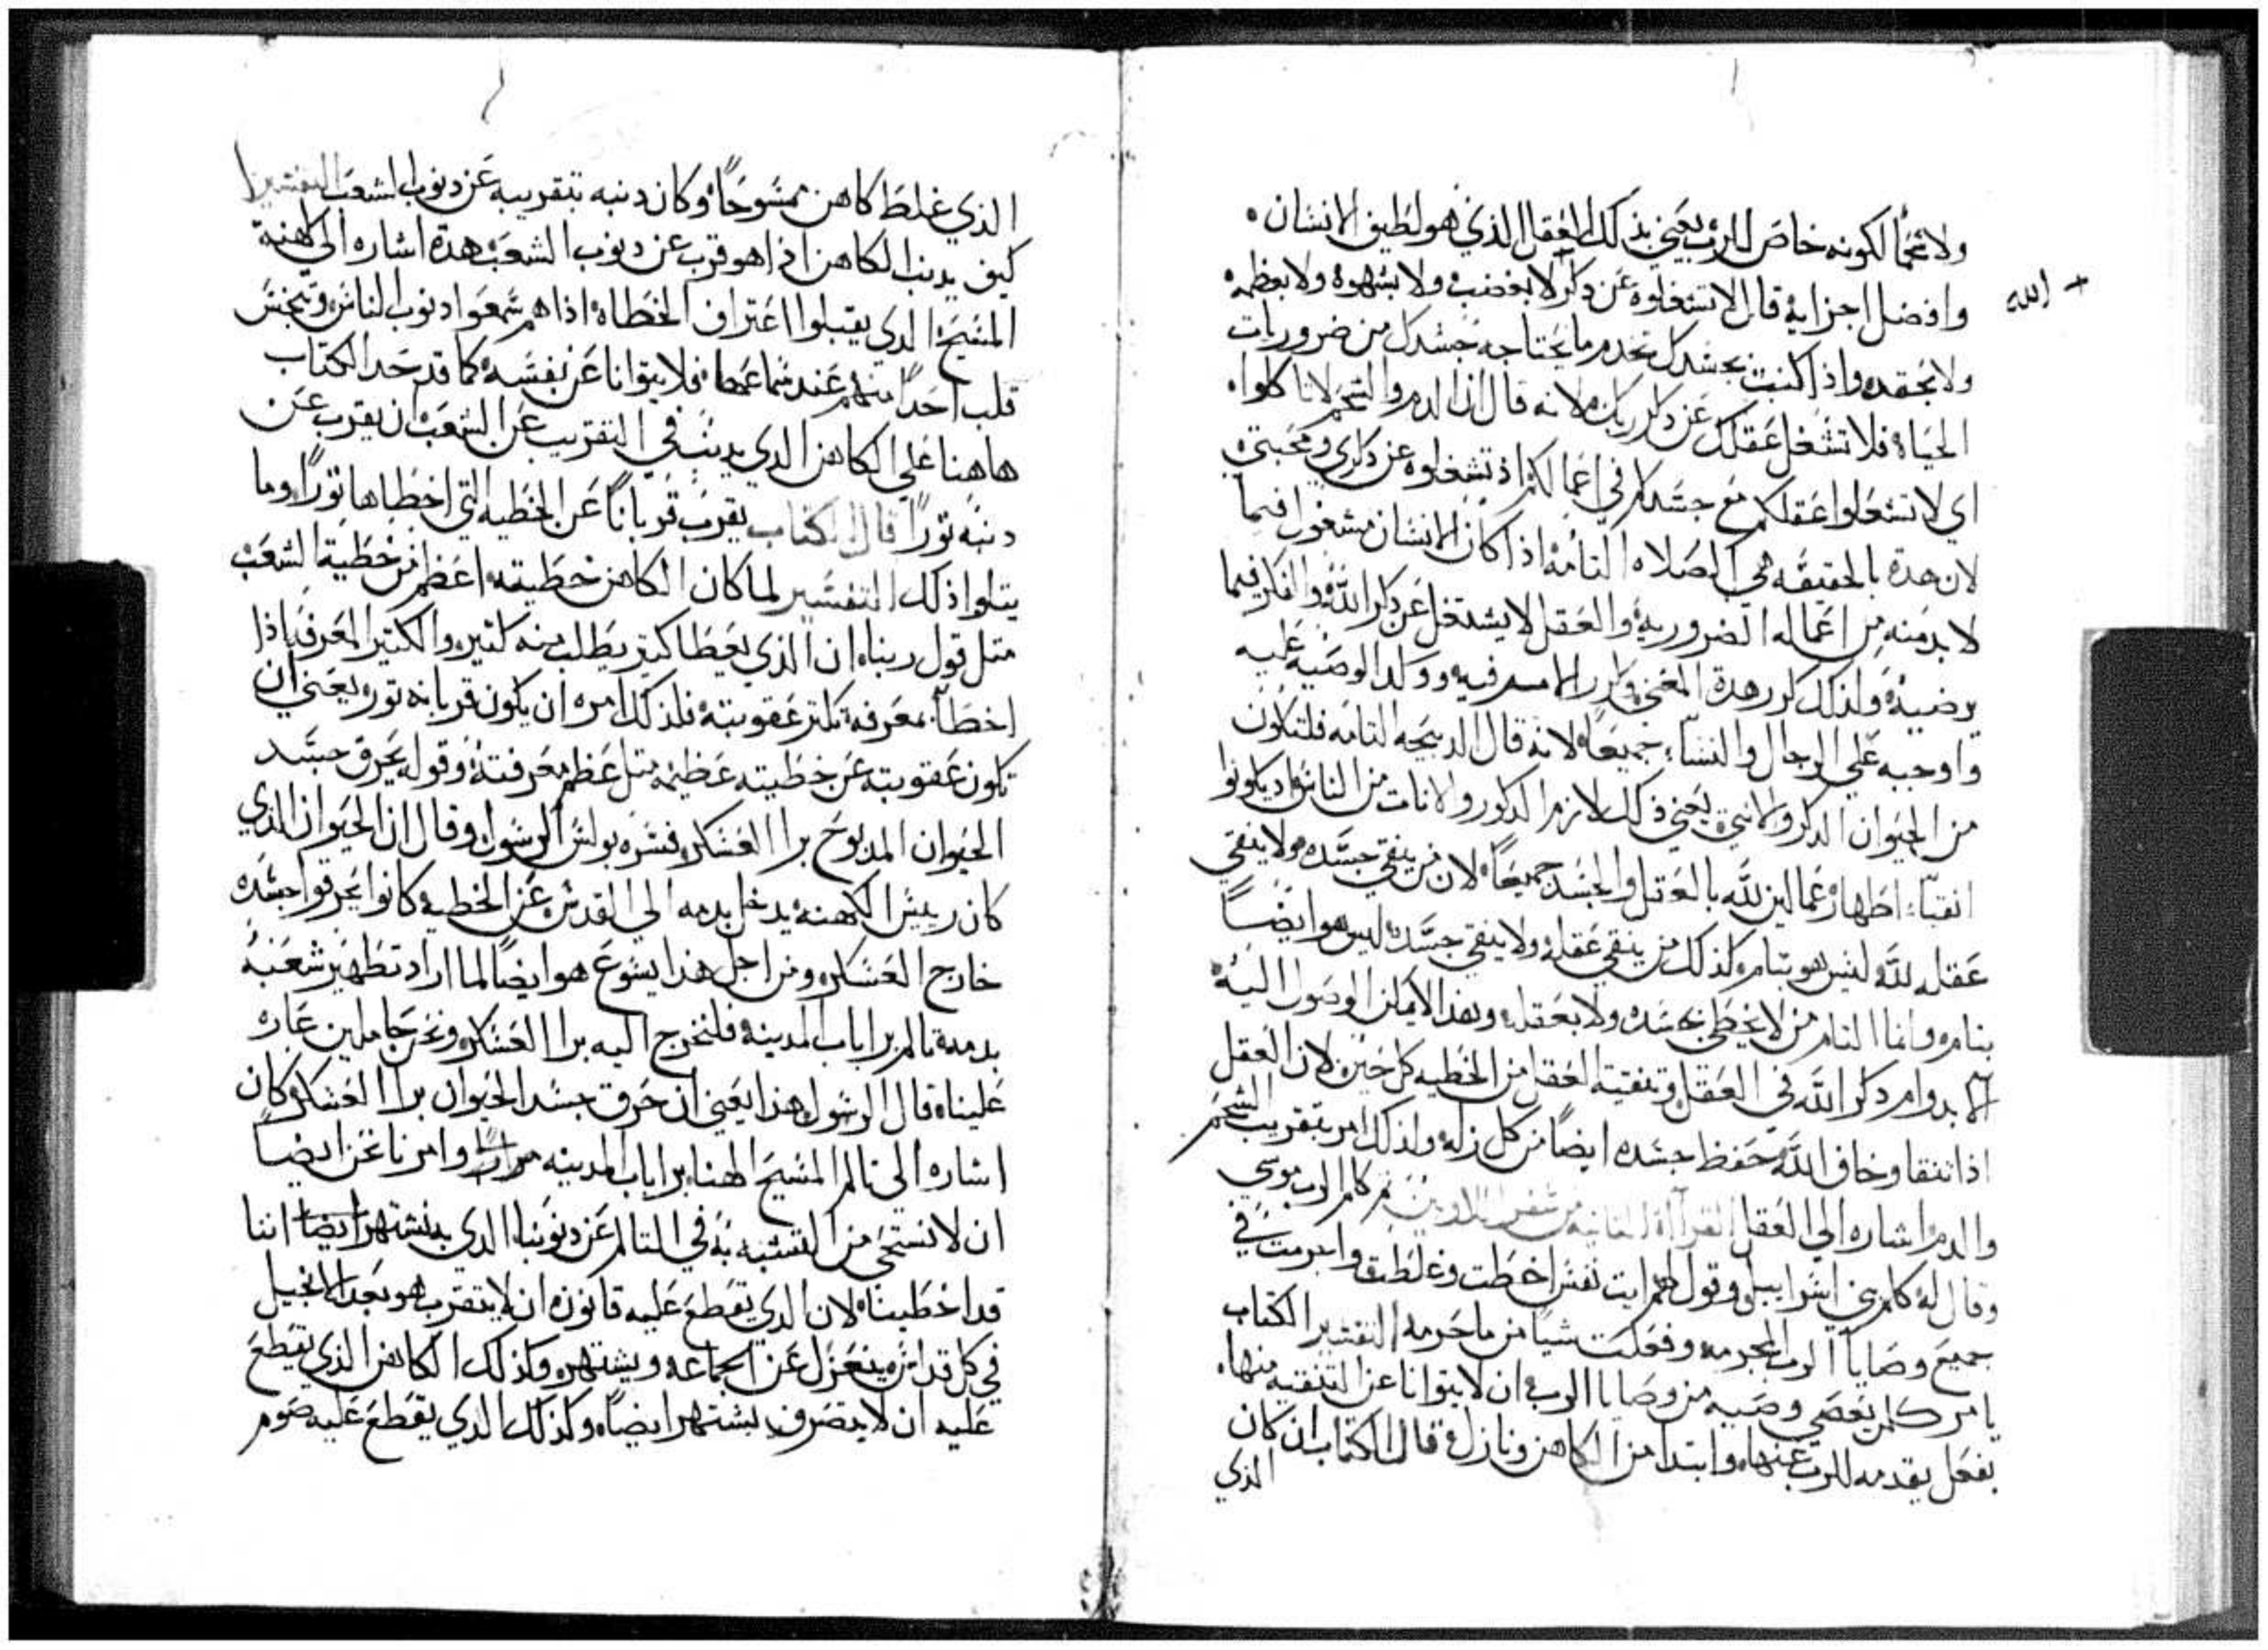 ولا شحمًا لكونه خاص للرب يعني بذلك العقل الذي هو لطيف الانسان.
وافضل اجزايه قال لا تشغلوه عن ذكر لا بغضب ولا بشهوه ولا بعظمه
+ الله
ولا بحقد واذا كنت بجسدك تخدم ما يحتاجه جسدك من ضروريات
الحياه فلا تشغل عقلك عن ذكر ربك لانه قال ان الدم والشحم لا تاكلوا.
اي لا تشغلوا عقلكم مع جسدكم في اعمالكم اذ تشغلوه عن ذكري ومحبتي
لان هده بالحقيقه هي الصلاه التامه اذا كان الانسان مشغول فيما
لا بد منه من اعماله الضروريه والعقل لا يشتغل عن ذكر الله والفكر فيما
يرضيه ولذلك كرر هدة المعني وكرر الامر فيه ووكد الوصيه عليه
واوجبه علي الرجال والنسا جميعًا لانه قال الدبيحه التامه فلتكون
من الحيوان الدكر والانتي يعني ذلك لازم الدكور والانات من الناس اد يكونوا
انقيا اطهار عمالين لله بالعقل والجسد جميعًا لان من ينقي جسده ولا ينقي
عقله لله ليس هو بتام وكذلك من ينقي عقله ولا ينقي جسده ليس هو ايضًا
بتام وانما التام من لا يخطي بجسده ولا بعقله وهذا لا يمكن الوصول اليه
الا بدوام دكر الله في العقل وتنقية العقل من الخطيه كل حين لان العقل
اذا تنقا وخاف الله حفظ جسده ايضًا من كل زله ولذلك امر بتقريب الشحم
والدم اشاره الي العقل القراة التانيه من سفر اللاويين ثم كلم الرب موسي
وقال له كلم بني اسراييل وقول لهم ايت نفس اخطت وغلطت واجرمت في
جميع وصايا الرب المحرمه وفعلت شيا من ما حرمه التفسير الكتاب
يامر كلمن يعصي وصيه من وصايا الرب ان لا يتوانا عن التنقيه منها.
بفعل يقدمه للرب عنها وابتدا من الكاهن ونازل قال الكتاب ان كان
الذي
الذي غلط كاهن ممسوحًا وكان دنبه بتقريبه عن دنوب الشعب التفسير
كيف يدنب الكاهن اذا هو قرب عن دنوب الشعب هدة اشاره الي كهنة
المسيح الدي يقبلوا اعتراف الخطاه اذا هم سمعوا دنوب الناس وتنجس
قلب احدًا منهم عند سماعها فلا يتوانا عن نفسه كما قد حد الكتاب
هاهنا علي الكاهن الدي يدنب في التقريب عن الشعب ان يقرب عن
دنبه تورًا قال الكتاب يقرب قربانًا عن الخطيه التي اخطاها تورًا وما
يتلوا ذلك التفسير لما كان الكاهن خطيته اعظم من خطية الشعب
متل قول ربنا ان الذي يعطا كتير يطلب منه كتير والكتير المعرفه اذا
اخطا بمعرفه تكتر عقوبته فلذلك امره ان يكون قربانه تور يعني ان
تكون عقوبته عن خطيته عظيمه متل عظم معرفته وقوله يحرق جسد
الحيوان المدبوح برا العسكر فسره بولس الرسول وقال ان الحيوان الذي
كان رييس الكهنه يدخل بدمه الي القدس عن الخطيه كانوا يحرقوا جسده
خارج العسكر ومن اجل هذا يسوع هو ايضًا لما اراد تطهير شعبه
بدمه تالم برا باب المدينه فلنخرج اليه برا العسكر ونحن حاملين عاره
علينا قال الرسول هذا يعني ان حرق جسد الحيوان برا العسكر وكان
اشاره الي تالم المسيح الهنا برا باب المدينه وامرنا نحن ايضًا
ان لا نستحي من التشبه به في التالم عن دنوبنا الدي به نشتهر ايضًا اننا
قد اخطينا لان الدي تقطع عليه قانون ان لا يتقرب هو بعد الانجيل
في كل قداس ينعزل عن الجماعه ويشتهر وكذلك الكاهن الذي تقطع
عليه ان لا يتصرف يشتهر ايضًا وكذلك الدي يقطع عليه صوم